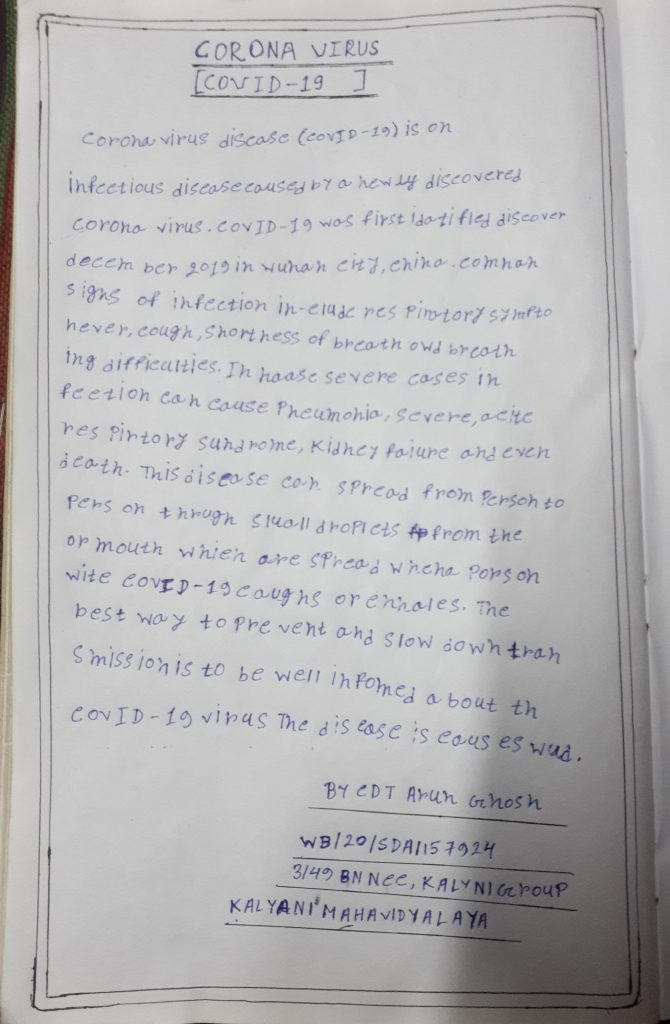 CORONA VIRUS
[COVID-19 ]
Corona virus disease (covID-19) is on
infeetious disease caused by a newly discovered
corona virus. covID-19 was first idatified discover
decem ber 2019 in wuhan city, china. comnan
signs of infection in-elude res Pirotory sympto
hever, cough, shortness of breath owd breath
ing difficulties. In haase severe cases in
feetion can cause Pneumohia, severe, acite
res Pirtory sundrome, Kidney faiure and even
death. This disease can spread from Person to
Pers on through sluall droplets from the
or mouth which are spread whena Porson
wite covID-19 caughs or enhales. The
best way to Pre vent and slow down tran
smission is to be well infomed a bout th
covID-19 virus The dis ease is eaus es wud.
BY CDT Arun Ghosh
WB/20/SDA/157924
3/49 BN Ncc, KALYNI GroUP
KALYANI MAHAVIDYALAYA